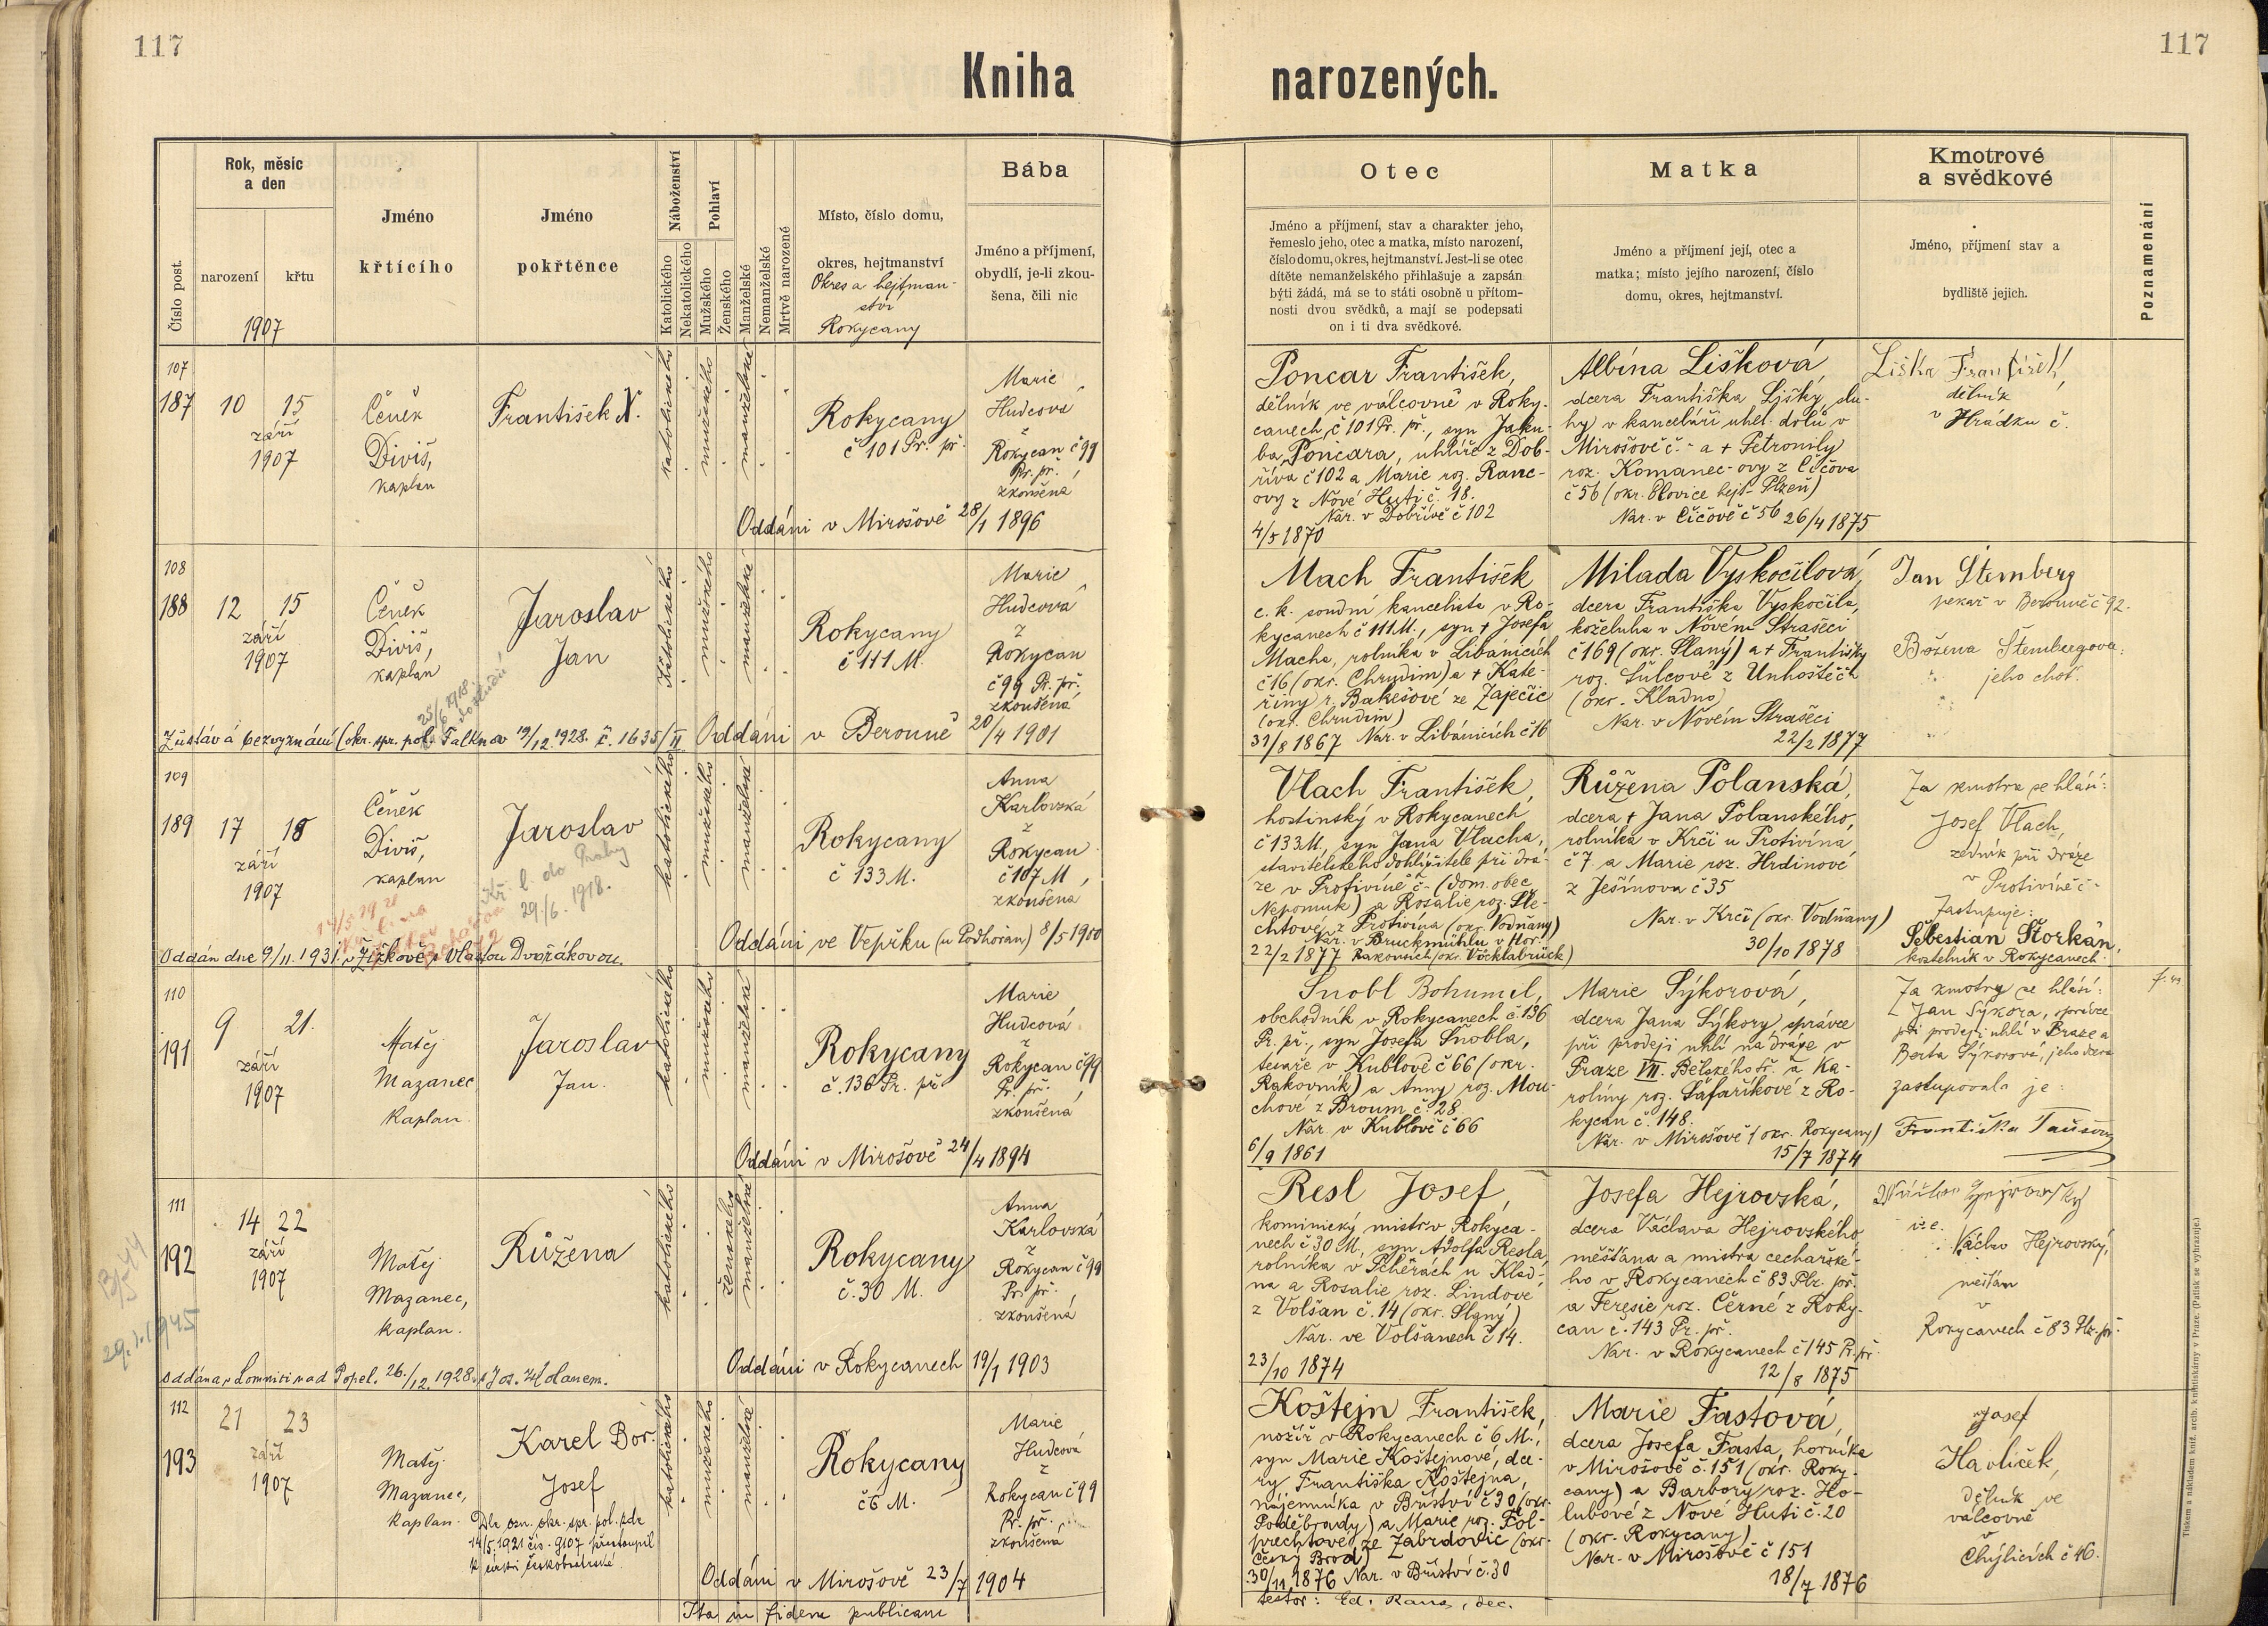 117
117
Kniha narozených.
Číslo post.
Rok, měsíc
a den
narození
křtu
1907
Jméno
křtícího
Jméno
pokřtěnce
Náboženství
Katolického
Nekatolického
Pohlaví
Mužského
Ženského
Manželské
Nemanželské
Mrtvě narozené
Místo, číslo domu,
okres, hejtmanství
Okres a hejtman-
ství
Rokycany
Bába
Jméno a příjmení,
obydlí, je-li zkou-
šena, čili nic
Otec
Jméno a příjmení, stav a charakter jeho,
řemeslo jeho, otec a matka, místo narození,
číslo domu, okres, hejtmanství. Jest-li se otec
dítěte nemanželského přihlašuje a zapsán
býti žádá, má se to státi osobně u přítom-
nosti dvou svědků, a mají se podepsati
on i ti dva svědkové.
Matka
Jméno a příjmení její, otec a
matka; místo jejího narození, číslo
domu, okres, hejtmanství.
Kmotrové
a svědkové
Jméno, příjmení stav a
bydliště jejich.
Poznamenání
107
187
10 15
září
1907
Čeněk
Diviš,
kaplan
František
katolického
mužského
manželské
Rokycany
č 101 Pr. př.
Marie
Hudcová
z
Rokycan č 99
Pr. př.,
zkoušená
Oddáni v Mirošově 28/1 1896
Poncar František,
dělník ve válcovně v Roky-
canech, č 101 Pr. př., syn Jaku-
ba Poncara, uhlíře z Dob-
říva č 102 a Marie roz. Ranc-
ovy z Nové Huti č. 18.
Nar. v Dobřívě č 102
4/5 1870
Albína Lišková,
dcera Františka Lišky, slu-
hy v kanceláři uhel. dolů v
Mirošově č. - a + Petronily
roz. Komanec-ovy z Číčova
č 56 (okr. Blovice hejt. Plzeň)
Nar. v Číčově č 56 26/4 1875
Liška František,
dělník
v Hrádku č.
108
188
12 15
září
1907
Čeněk
Diviš,
kaplan
Jaroslav
Jan
Katolického
mužského
manželské
Rokycany
č 111 M.
Marie
Hudcová
z
Rokycan
č 99 Pr. př.,
zkoušená
25/6 1918
Zůstává bez vyznání (okr. spr. pol. Falknov 19/12. 1928. č. 1635/II
Oddáni v Berouně 20/4 1901
Mach František
c. k. soudní kancelista v Ro-
kycanech č 111 M., syn + Josefa
Macha, rolníka v Libánicích
č 16 (okr. Chrudim) a + Kate-
řiny r. Bakešové ze Zaječic
(okr. Chrudim)
31/8 1867 Nar. v Libánicích č 16
Milada Vyskočilová,
dcera Františka Vyskočila,
koželuha v Novém Strašecí
č 169 (okr. Slaný) a + Františky
roz. Šulcové z Unhoště č
(okr. Kladno)
Nar. v Novém Strašecí
22/2 1877
Jan Štemberg
pekař v Berouně č 92.
Božena Štembergova.
jeho choť.
109
189
17 18
září
1907
Čeněk
Diviš,
kaplan
Jaroslav
Kř. l. do Prahy
29./6. 1918.
katolického
mužského
manželské
Rokycany
č 133 M.
Anna
Karlovská
z
Rokycan
č 107 M,
zkoušená
Oddán dne 9/11. 1931. v Žižkově s Vlastou Dvořákovou.
Oddáni ve Vepřku (u Podhořan) 8/5 1900
Vlach František,
hostinský v Rokycanech
č 133 M., syn Jana Vlacha,
stavitelského dohližitele při drá-
ze v Protivíně č - (dom. obec
Nepomuk) a Rosalie roz. Šle-
chtové z Protivína (okr. Vodňany)
Nar. v Bruckmühlu v Hor.
22/2 1877 Rakousích (okr. Vöcklabrück)
Růžena Polanská,
dcera + Jana Polanského,
rolníka v Krči u Protivína
č 7. a Marie roz. Hrdinové
z Ješínova č 35
Nar. v Krči (okr. Vodňany)
30/10 1878
Za kmotra se hlásí:
Josef Vlach,
zedník při dráze
v Protivíně č -
Zastupuje:
Šebestián Štorkán,
kostelník v Rokycanech.
110
191
9 21.
září
1907
Matěj
Mazanec
kaplan.
Jaroslav
Jan.
katolického
mužského
manželské
Rokycany
č. 136 Pr. př.
Marie
Hudcová
z
Rokycan č 99
Pr. př.,
zkoušená
Oddáni v Mirošově 24/4 1894
Šnobl Bohumil,
obchodník v Rokycanech č. 136
Pr. př., syn Josefa Šnobla,
tesaře v Kublově č 66 (okr.
Rakovník) a Anny roz. Mou-
chové z Broum č. 28.
Nar. v Kublově č 66
6/9 1861
Marie Sýkorová,
dcera Jana Sýkory, správce
při prodeji uhlí na dráze v
Praze VII. Bělského tř. a Ka-
rolíny roz. Šafaříkové z Ro-
kycan č. 148.
Nar. v Mirošově (okr. Rokycany)
15/7 1874
Za kmotry se hlásí:
Jan Sýkora, správce
při prodeji uhlí v Praze a
Berta Sýkorová, jeho dcera
zastupovala je:
Františka
111
192
14 22
září
1907
Matěj
Mazanec,
kaplan.
Růžena
katolického
ženského
manželské
Rokycany
č. 30 M.
Anna
Karlovská
z
Rokycan č 99
Pr. př.
zkoušená
29.1.1945
Oddána v Lomnici nad Popel. 26./12. 1928. s Jos.
Oddáni v Rokycanech 19/1 1903
Resl Josef,
kominický mistr v Rokyca-
nech č 30 M., syn Adolfa Resla,
rolníka v Pchérách u Klad-
na a Rosalie roz. Lindové
z Volšan č. 14 (okr. Slaný)
Nar. ve Volšanech č 14.
23/10 1874
Josefa Hejrovská,
dcera Václava Hejrovského
měšťana a mistra cechařské-
ho v Rokycanech č 83 Plz. př.
a Teresie roz. Černé z Roky-
can č. 143 Pr. př.
Nar. v Rokycanech č 145 Pr. př.
12/8 1875
i. e.
Václav Hejrovský,
měšťan
v
Rokycanech č 83 Plz. př.
112
193
21 23
září
1907
Matěj
Mazanec,
kaplan.
Karel Bor.
Josef
Dle ozn. okr. spr. pol. zde
14/5. 1921 čís. 9107 přestoupil
k církvi českobratrské.
katolického
mužského
manželské
Rokycany
č 6 M.
Marie
Hudcová
z
Rokycan č 99
Pr. př.
zkoušená
Oddáni v Mirošově 23/7 1904
Koštejn František,
nožíř v Rokycanech č 6 M.,
syn Marie Koštejnové, dce-
ry, Františka Koštejna,
nájemníka v Bříství č 30 (okr.
Poděbrady) a Marie roz. Fol-
prechtové ze Zábrdovic (okr.
Český Brod)
30/11 1876 Nar. v Bříství č. 30
Marie Fastová,
dcera Josefa Fasta, horníka
v Mirošově č. 151 (okr. Roky-
cany) a Barbory roz. Ho-
lubové z Nové Huti č. 20
(okr. Rokycany)
Nar. v Mirošově č 151
18/7 1876
Josef
Havlíček,
dělník ve
válcovně
v
Chýlicích č 46.
Ita in fidem publicam
testor: Ed. Rana, dec.
Tiskem a nákladem kníž. arcib. knihtiskárny v Praze. (Patisk se vyhrazuje.)